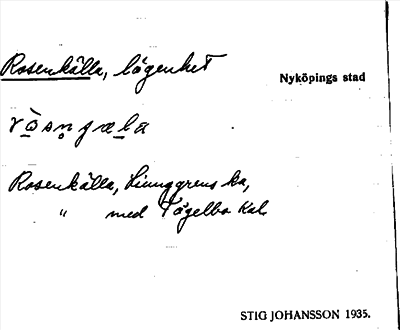 Rosenkälla, lägenhet
Nyköpings stad
Rosenkälla, Ljunggrens ka,
" med Fågelbo Kal.
STIG JOHANSSON 1935.